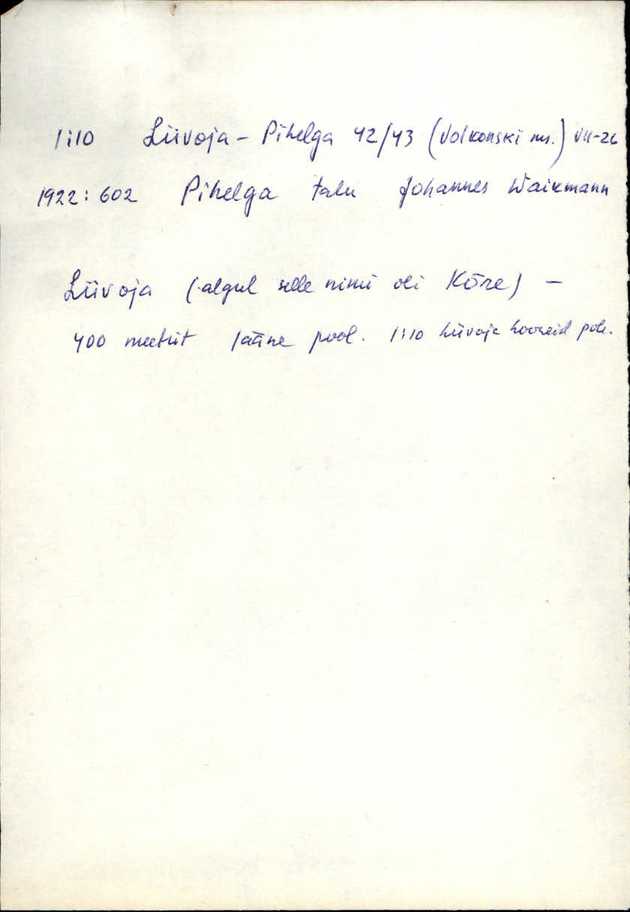 1:10 Liivoja - Pihelga 42/43 (Volkonski ms.) VII-26
1922: 602 Pihelga talu Johannes Waikmann
Liivoja (algul selle nimi oli Kõre) -
400 meetrit lääne pool. 1:10 Liivoja hooneid pole.